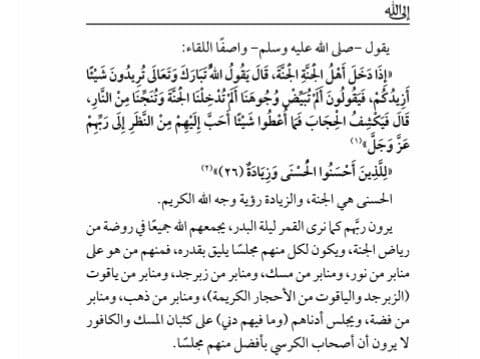 إلى الله
يقول -صلى الله عليه وسلم- واصفًا اللقاء:
«إِذَا دَخَلَ أَهْلُ الْجَنَّةِ الْجَنَّةَ، قَالَ يَقُولُ اللهُ تَبَارَكَ وَتَعَالَى تُرِيدُونَ شَيْئًا
أَزِيدُكُمْ، فَيَقُولُونَ أَلَمْ تُبَيِّضْ وُجُوهَنَا أَلَمْ تُدْخِلْنَا الْجَنَّةَ وَتُنَجِّنَا مِنْ النَّارِ،
قَالَ فَيَكْشِفُ الْحِجَابَ فَمَا أُعْطُوا شَيْئًا أَحَبَّ إِلَيْهِمْ مِنْ النَّظَرِ إِلَى رَبِّهِمْ
عَزَّ وَجَلَّ»(١)
«لِلَّذِينَ أَحْسَنُوا الْحُسْنَى وَزِيَادَةٌ (٢٦)»(٢)
الحسنى هي الجنة، والزيادة رؤية وجه الله الكريم.
يرون ربَّهم كما نرى القمر ليلة البدر، يجمعهم الله جميعًا في روضة من
رياض الجنة، ويكون لكل منهم مجلسًا يليق بقدره، فمنهم من هو على
منابر من نور، ومنابر من مسك، ومنابر من زبرجد، ومنابر من ياقوت
(الزبرجد والياقوت من الأحجار الكريمة)، ومنابر من ذهب، ومنابر
من فضة، ويجلس أدناهم (وما فيهم دني) على كثبان المسك والكافور
لا يرون أن أصحاب الكرسي بأفضل منهم مجلسًا.